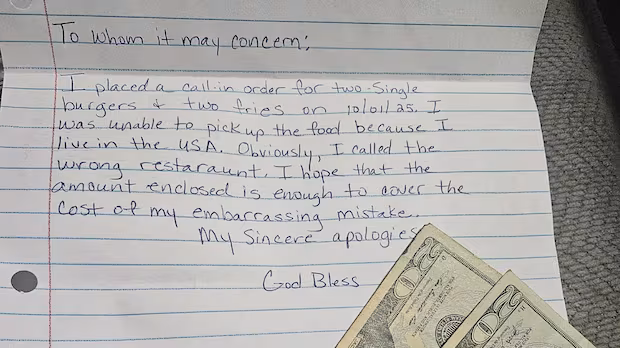 To whom it may concern:
I placed a call-in order for two single
burgers & two fries on 10/01/25. I
was unable to pick up the food because I
live in the USA. Obviously, I called the
wrong restaraunt. I hope that the
amount enclosed is enough to cover the
cost of my embarrassing mistake.
My Sincere apologies
God Bless
20
20